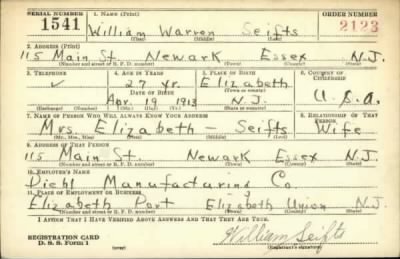 SERIAL NUMBER 1. NAME (Print) ORDER NUMBER
1541 William Warren Seifts 2123
(First) (Middle) (Last)
2. ADDRESS (Print)
115 Main St. Newark Essex N.J.
(Number and street or R. F. D. number) (Town) (County) (State)
3. TELEPHONE 4. AGE IN YEARS 5. PLACE OF BIRTH 6. COUNTRY OF CITIZENSHIP
27 yr. Elizabeth
DATE OF BIRTH (Town or county)
Apr. 19 1913 N.J. U.S.A.
(Exchange) (Number) (Mo.) (Day) (Yr.) (State or country)
7. NAME OF PERSON WHO WILL ALWAYS KNOW YOUR ADDRESS 8. RELATIONSHIP OF THAT PERSON
Mrs Elizabeth — Seifts Wife
(Mr., Mrs., Miss) (First) (Middle) (Last)
9. ADDRESS OF THAT PERSON
115 Main St. Newark Essex N.J.
(Number and street or R. F. D. number) (Town) (County) (State)
10. EMPLOYER'S NAME
Diehl Manufacturing Co.
11. PLACE OF EMPLOYMENT OR BUSINESS
Elizabeth Port Elizabeth Union N.J.
(Number and street or R. F. D. number) (Town) (County) (State)
I AFFIRM THAT I HAVE VERIFIED ABOVE ANSWERS AND THAT THEY ARE TRUE.
REGISTRATION CARD
D. S. S. Form 1
William Seifts